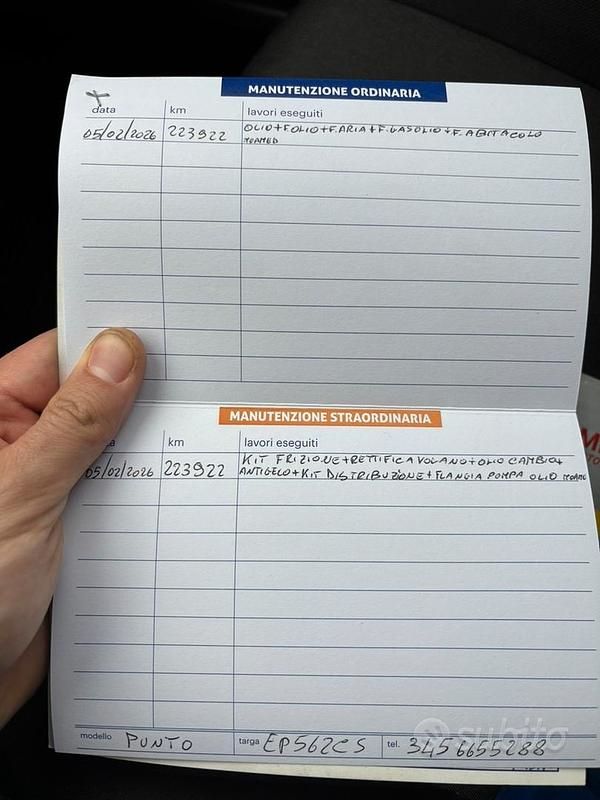 MANUTENZIONE ORDINARIA
data km lavori eseguiti
05/02/2026 223922 OLIO+F.OLIO+F.ARIA+F.GASOLIO+F.ABITACOLO
MANUTENZIONE STRAORDINARIA
km lavori eseguiti
05/02/2026 223922 KIT FRIZIONE+RETTIFICA VOLANO+OLIO CAMBIO+
ANTIGELO+KIT DISTRIBUZIONE+FLANGIA POMPA OLIO
modello PUNTO targa EP562CS tel. 3456655288
subito